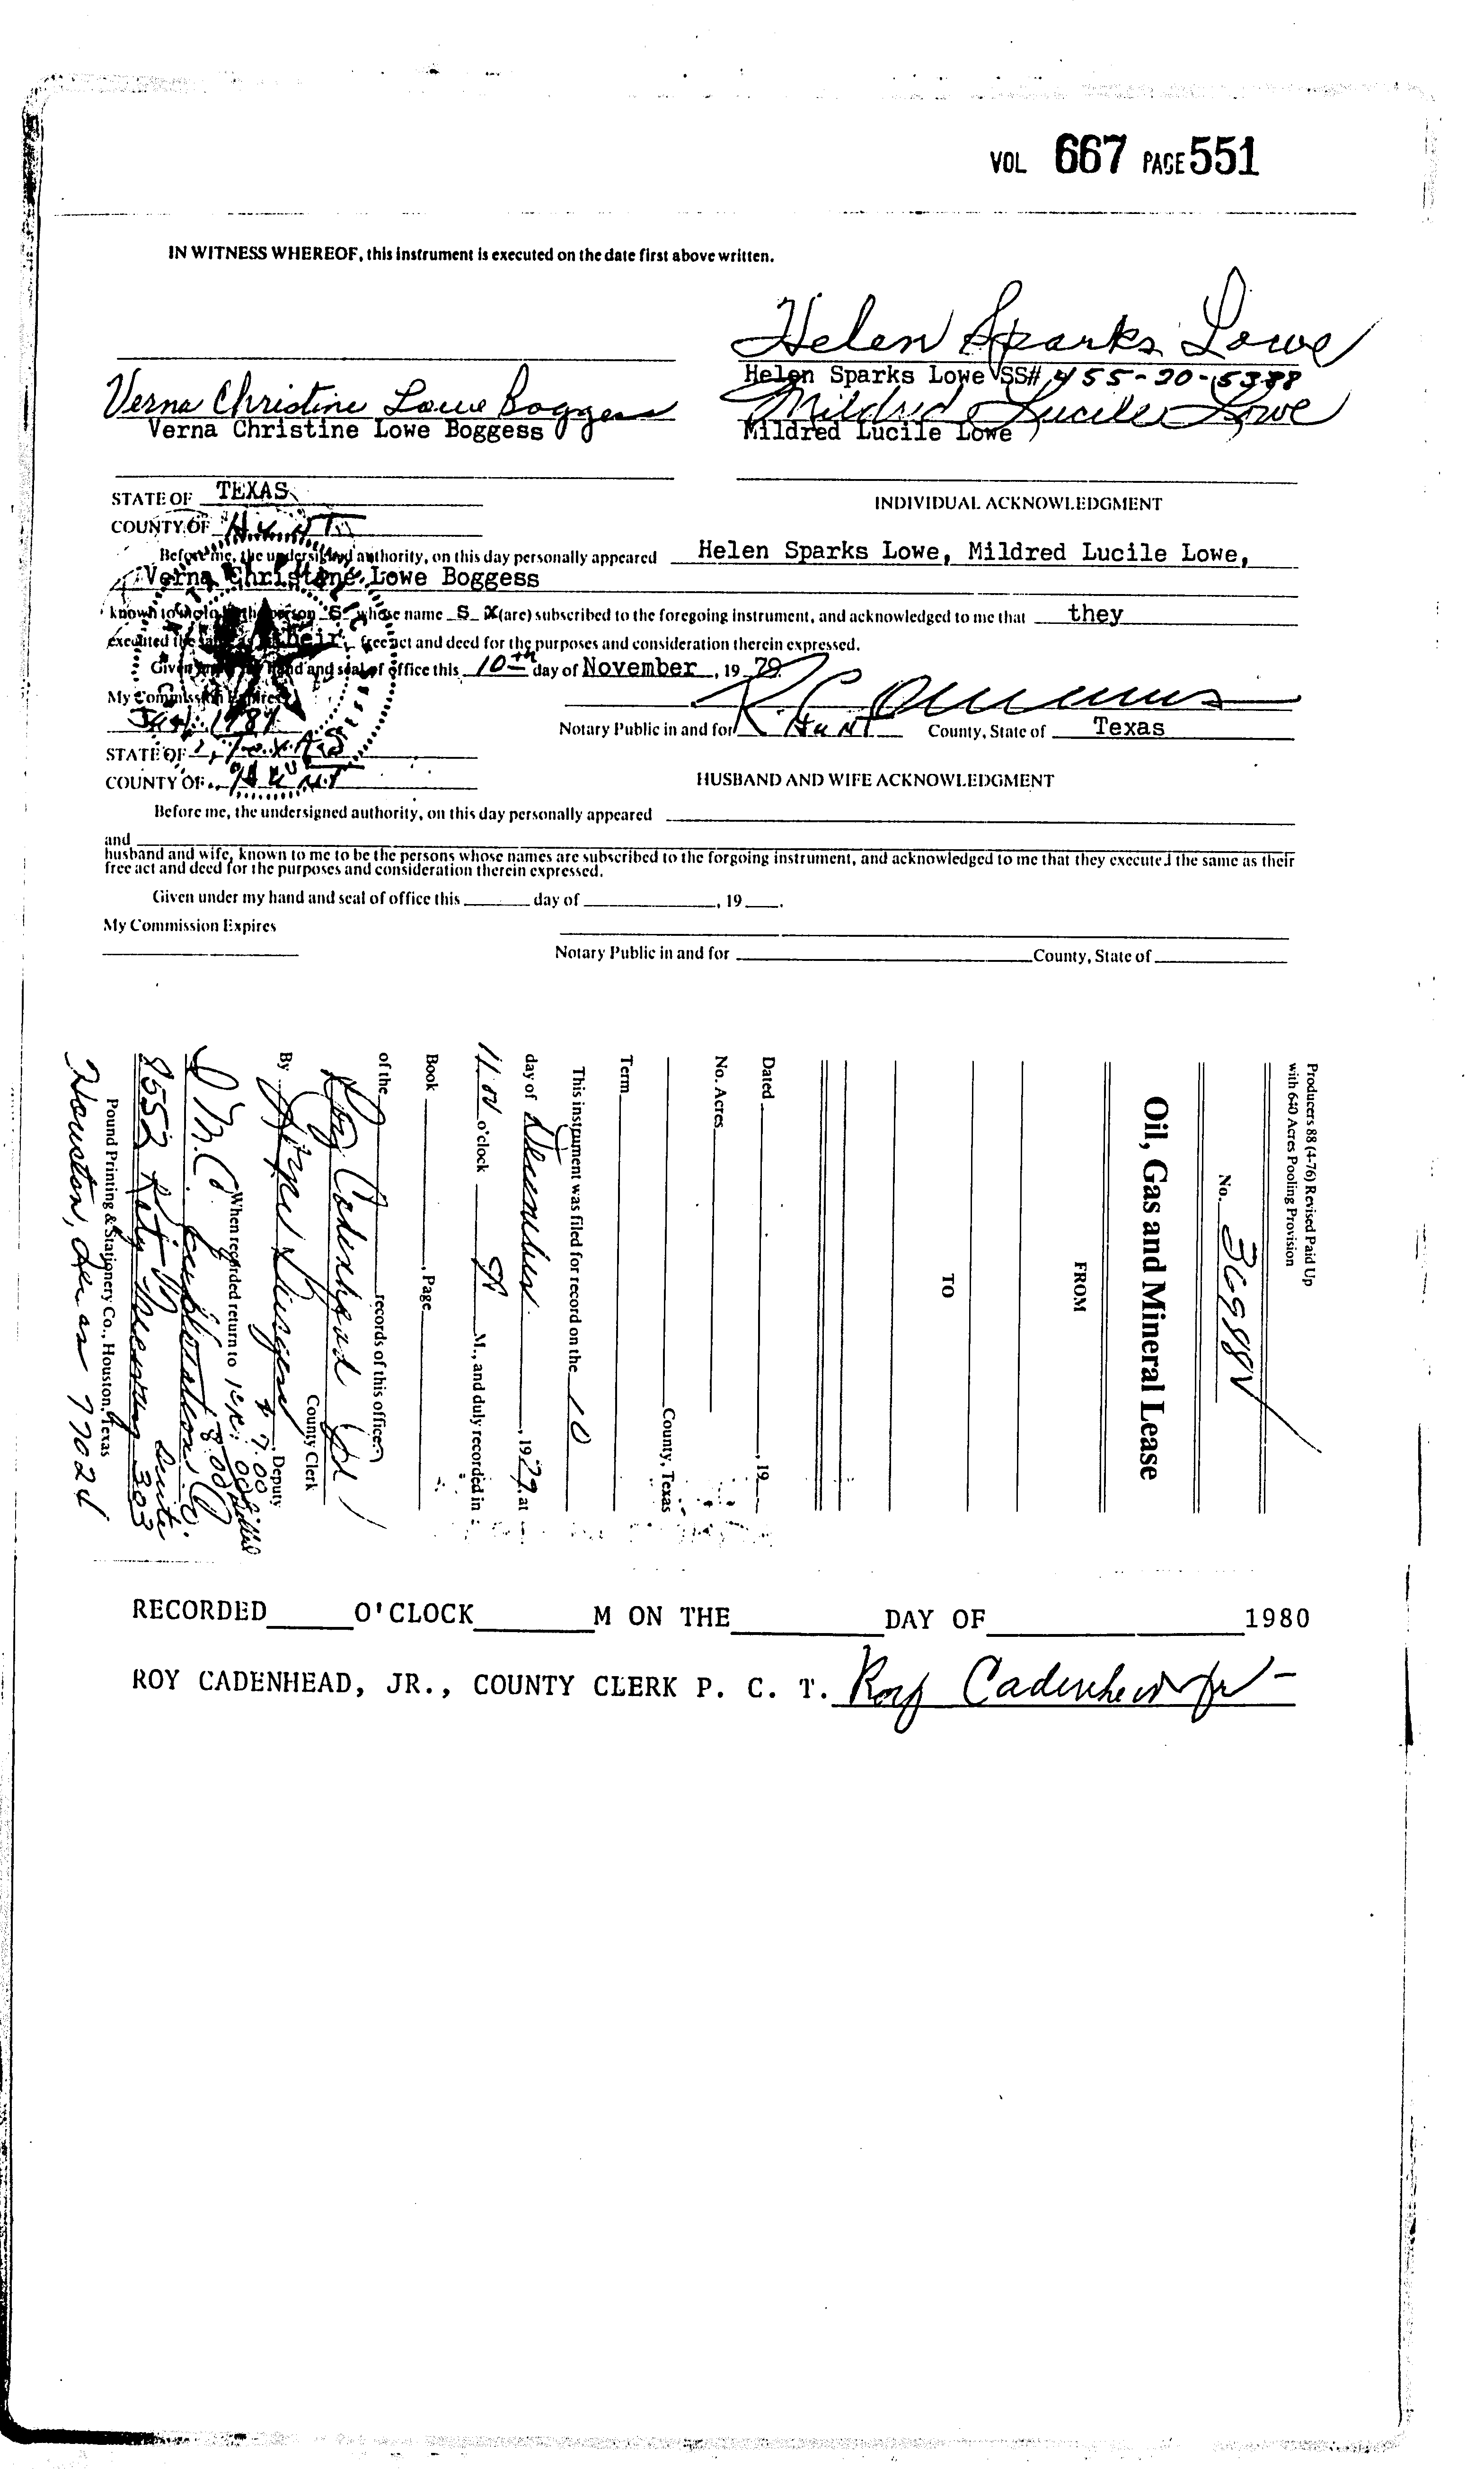 VOL 667 PAGE 551
IN WITNESS WHEREOF, this instrument is executed on the date first above written.
Helen Sparks Lowe
Helen Sparks Lowe SS# 455-30-5388
Verna Christine Lowe Boggess
Mildred Lucile Lowe
Verna Christine Lowe Boggess
Mildred Lucile Lowe
STATE OF TEXAS
INDIVIDUAL ACKNOWLEDGMENT
COUNTY OF HUNT
Before me, the undersigned authority, on this day personally appeared Helen Sparks Lowe, Mildred Lucile Lowe,
Verna Christine Lowe Boggess
known to me to be the person S whose name S X(are) subscribed to the foregoing instrument, and acknowledged to me that they
executed the same as their free act and deed for the purposes and consideration therein expressed.
Given under my hand and seal of office this 10th day of November, 1979.
My Commission Expires
1981
Notary Public in and for HUNT County, State of Texas
STATE OF Texas
COUNTY OF HUNT
HUSBAND AND WIFE ACKNOWLEDGMENT
Before me, the undersigned authority, on this day personally appeared
and
husband and wife, known to me to be the persons whose names are subscribed to the forgoing instrument, and acknowledged to me that they executed the same as their
free act and deed for the purposes and consideration therein expressed.
Given under my hand and seal of office this day of , 19 .
My Commission Expires
Notary Public in and for County, State of
Producers 88 (4-76) Revised Paid Up
with 640 Acres Pooling Provision
No. 36988V
Oil, Gas and Mineral Lease
FROM
TO
Dated , 19
No. Acres
County, Texas
Term
This instrument was filed for record on the 10
day of December , 1979, at
11:00 o'clock A M., and duly recorded in
Book , Page
of the records of this office.
Roy Cadenhead Jr
County Clerk
By , Deputy
$ 7.00
When recorded return to
8.00
J.M.C. Exploration Co.
9552 Katy Suite 303
Pound Printing & Stationery Co., Houston, Texas
Houston, Texas 77024
RECORDED O'CLOCK M ON THE DAY OF 1980
ROY CADENHEAD, JR., COUNTY CLERK P. C. T. Roy Cadenhead Jr